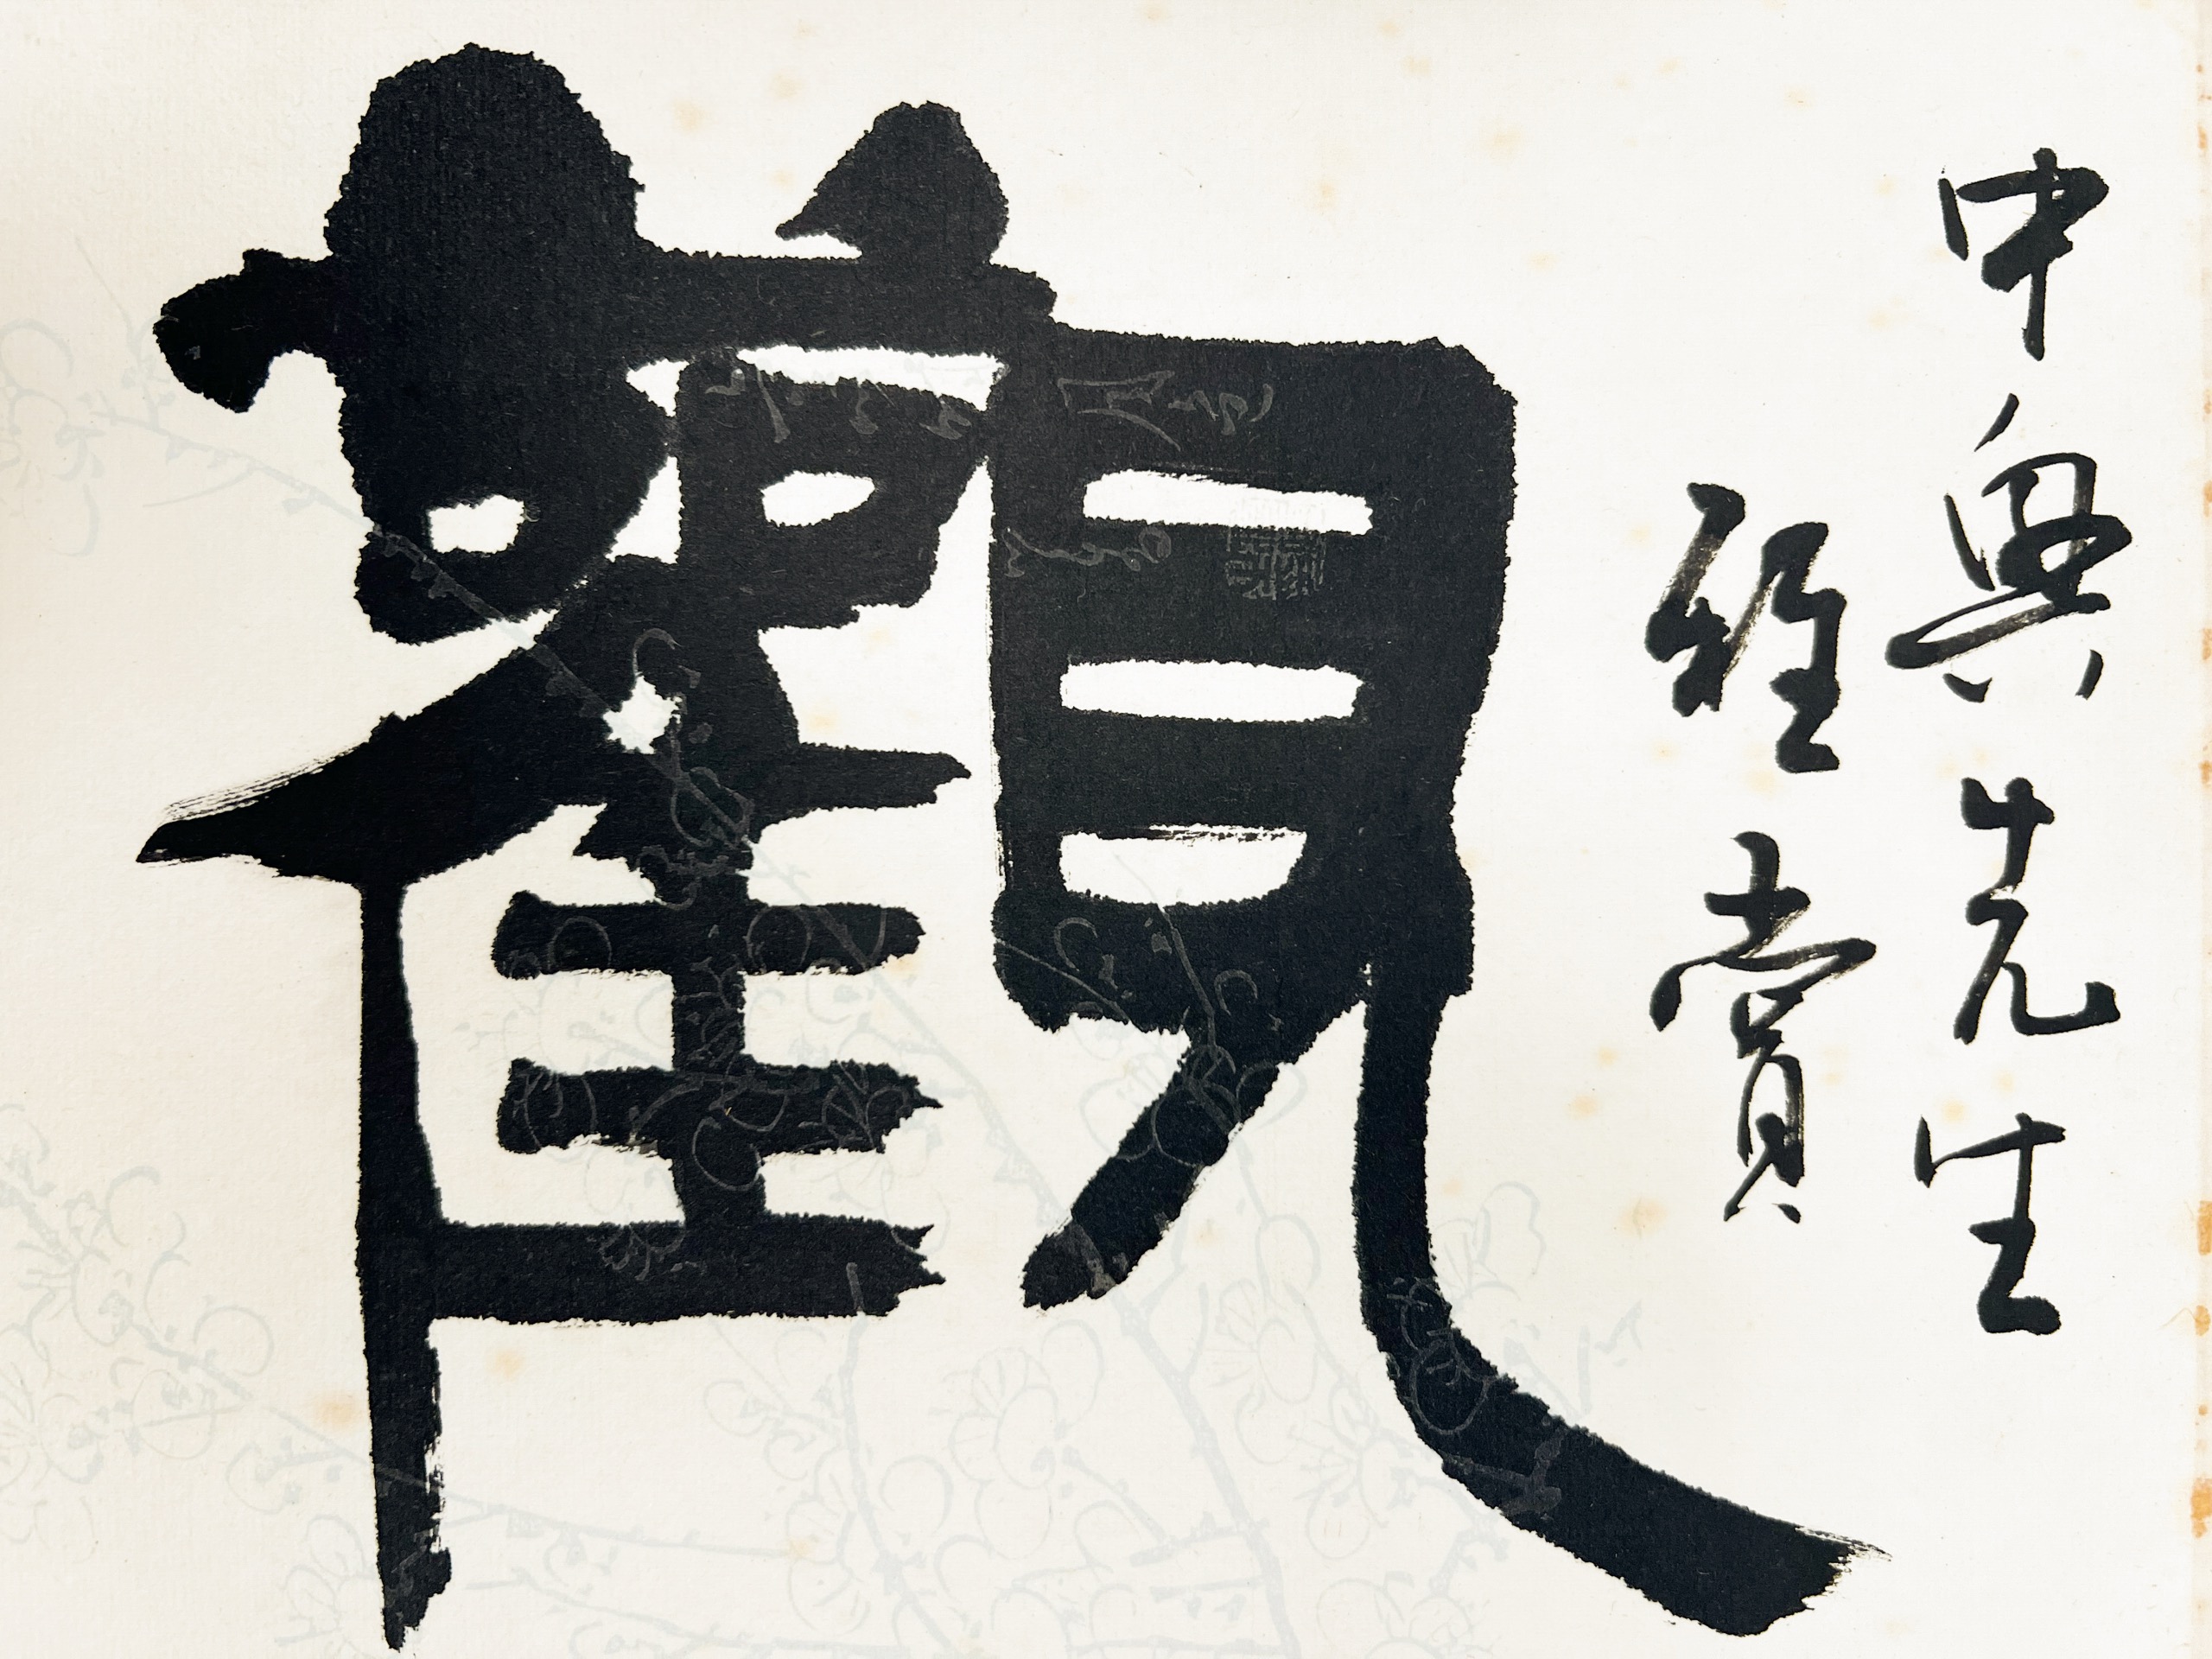 中興先生
雅賞
觀